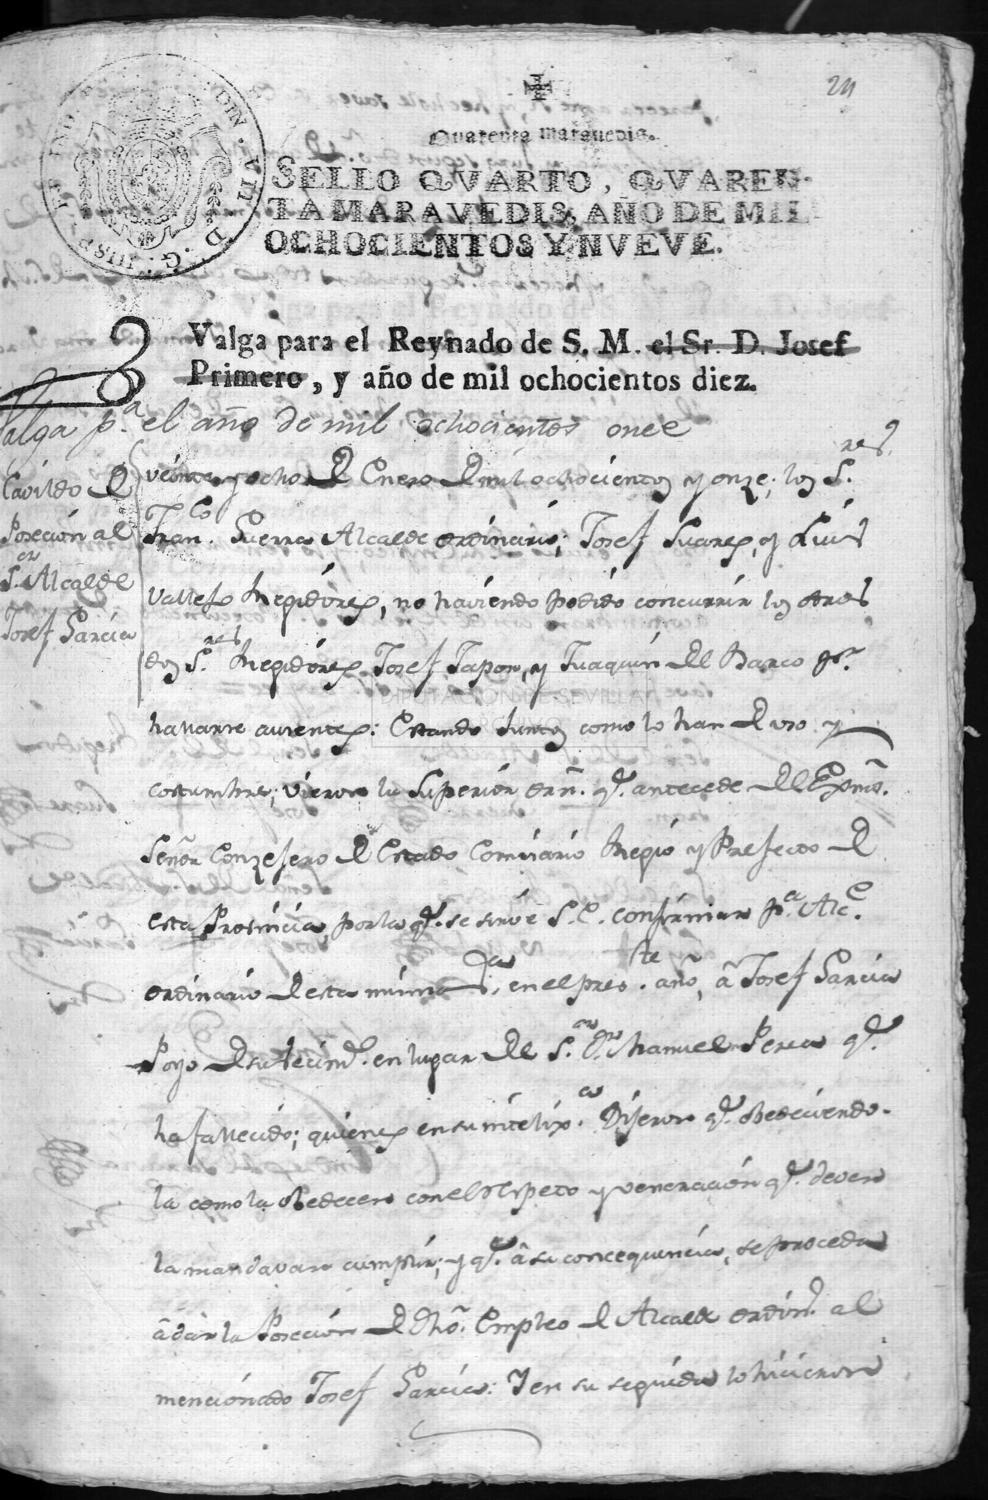 24
Quarenta maravedis.
SELLO QVARTO, QVAREN-
TA MARAVEDIS, AÑO DE MIL
OCHOCIENTOS Y NVEVE.
Valga para el Reynado de S. M. el Sr. D. Josef
Primero, y año de mil ochocientos diez.
Valga p.ª el año de mil ochocientos once
Cavildo de
Poseción al
S.or Alcalde
Josef Garcia
veinte y ocho de Enero de mil ochocientos y onze; los S.res
Fran.co Guerra Alcalde ordinario; Josef Suarez, y Luis
Valles Regidores, no haviendo podido concurrir los otros
dos S.res Regidores Josef Tapon, y Juaquin del Barco p.r
hallarse ausentes: Estando Juntos como lo han de uso y
costumbre; vieron la Superior orñ. q.e antecede del Exmõ.
Señor Conzejero de Estado Comisario Regio y Prefecto de
esta Provincia, por la q.e se sirve S. E. confirmar p.a Alc.e
ordinario de esta misma, en el pres.te año, â Josef Garcia
Poyo de su Vecind.d en lugar del S.or Manuel Perea q.e
ha fallecido; quienes en su intelix.a Dijeron q.e obedeciendo-
la como la obedecen con el respeto y veneración q.e deven
la mandavan cumplir; y q.e â su concequencia, se proceda
â dar la Poseción de dhõ. Empleo de Alcalde ordin.o al
mencionado Josef Garcia: Y en su seguida lo hicieron
DIPUTACION DE SEVILLA
ARCHIVO